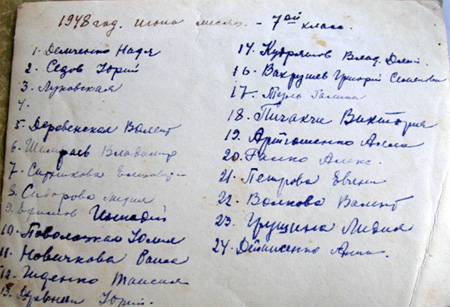 1948 год. июнь месяц - 7ой класс.
1. Демченко Надя
2. Седов Юрий
3. Луковская
4.
5. Деревенская Валент
6. Владимир
7.
8. Сидорова Лидия
9. Ефимов Геннадий
10. Поволоцкая Юлия
11. Новичкова Раиса
12. Гиденко Таисия
13. Юрий.
14. Кудряшов Влад. Дмит.
16. Вахрушев Григорий Семенович
17. Галина
18. Пичахчи Виктория
19. Артюшенко Алла
20. Алекс.
21. Петрова Евгени
22. Волкова Валент
23. Грушина Лидия
24. Денисенко Анна.